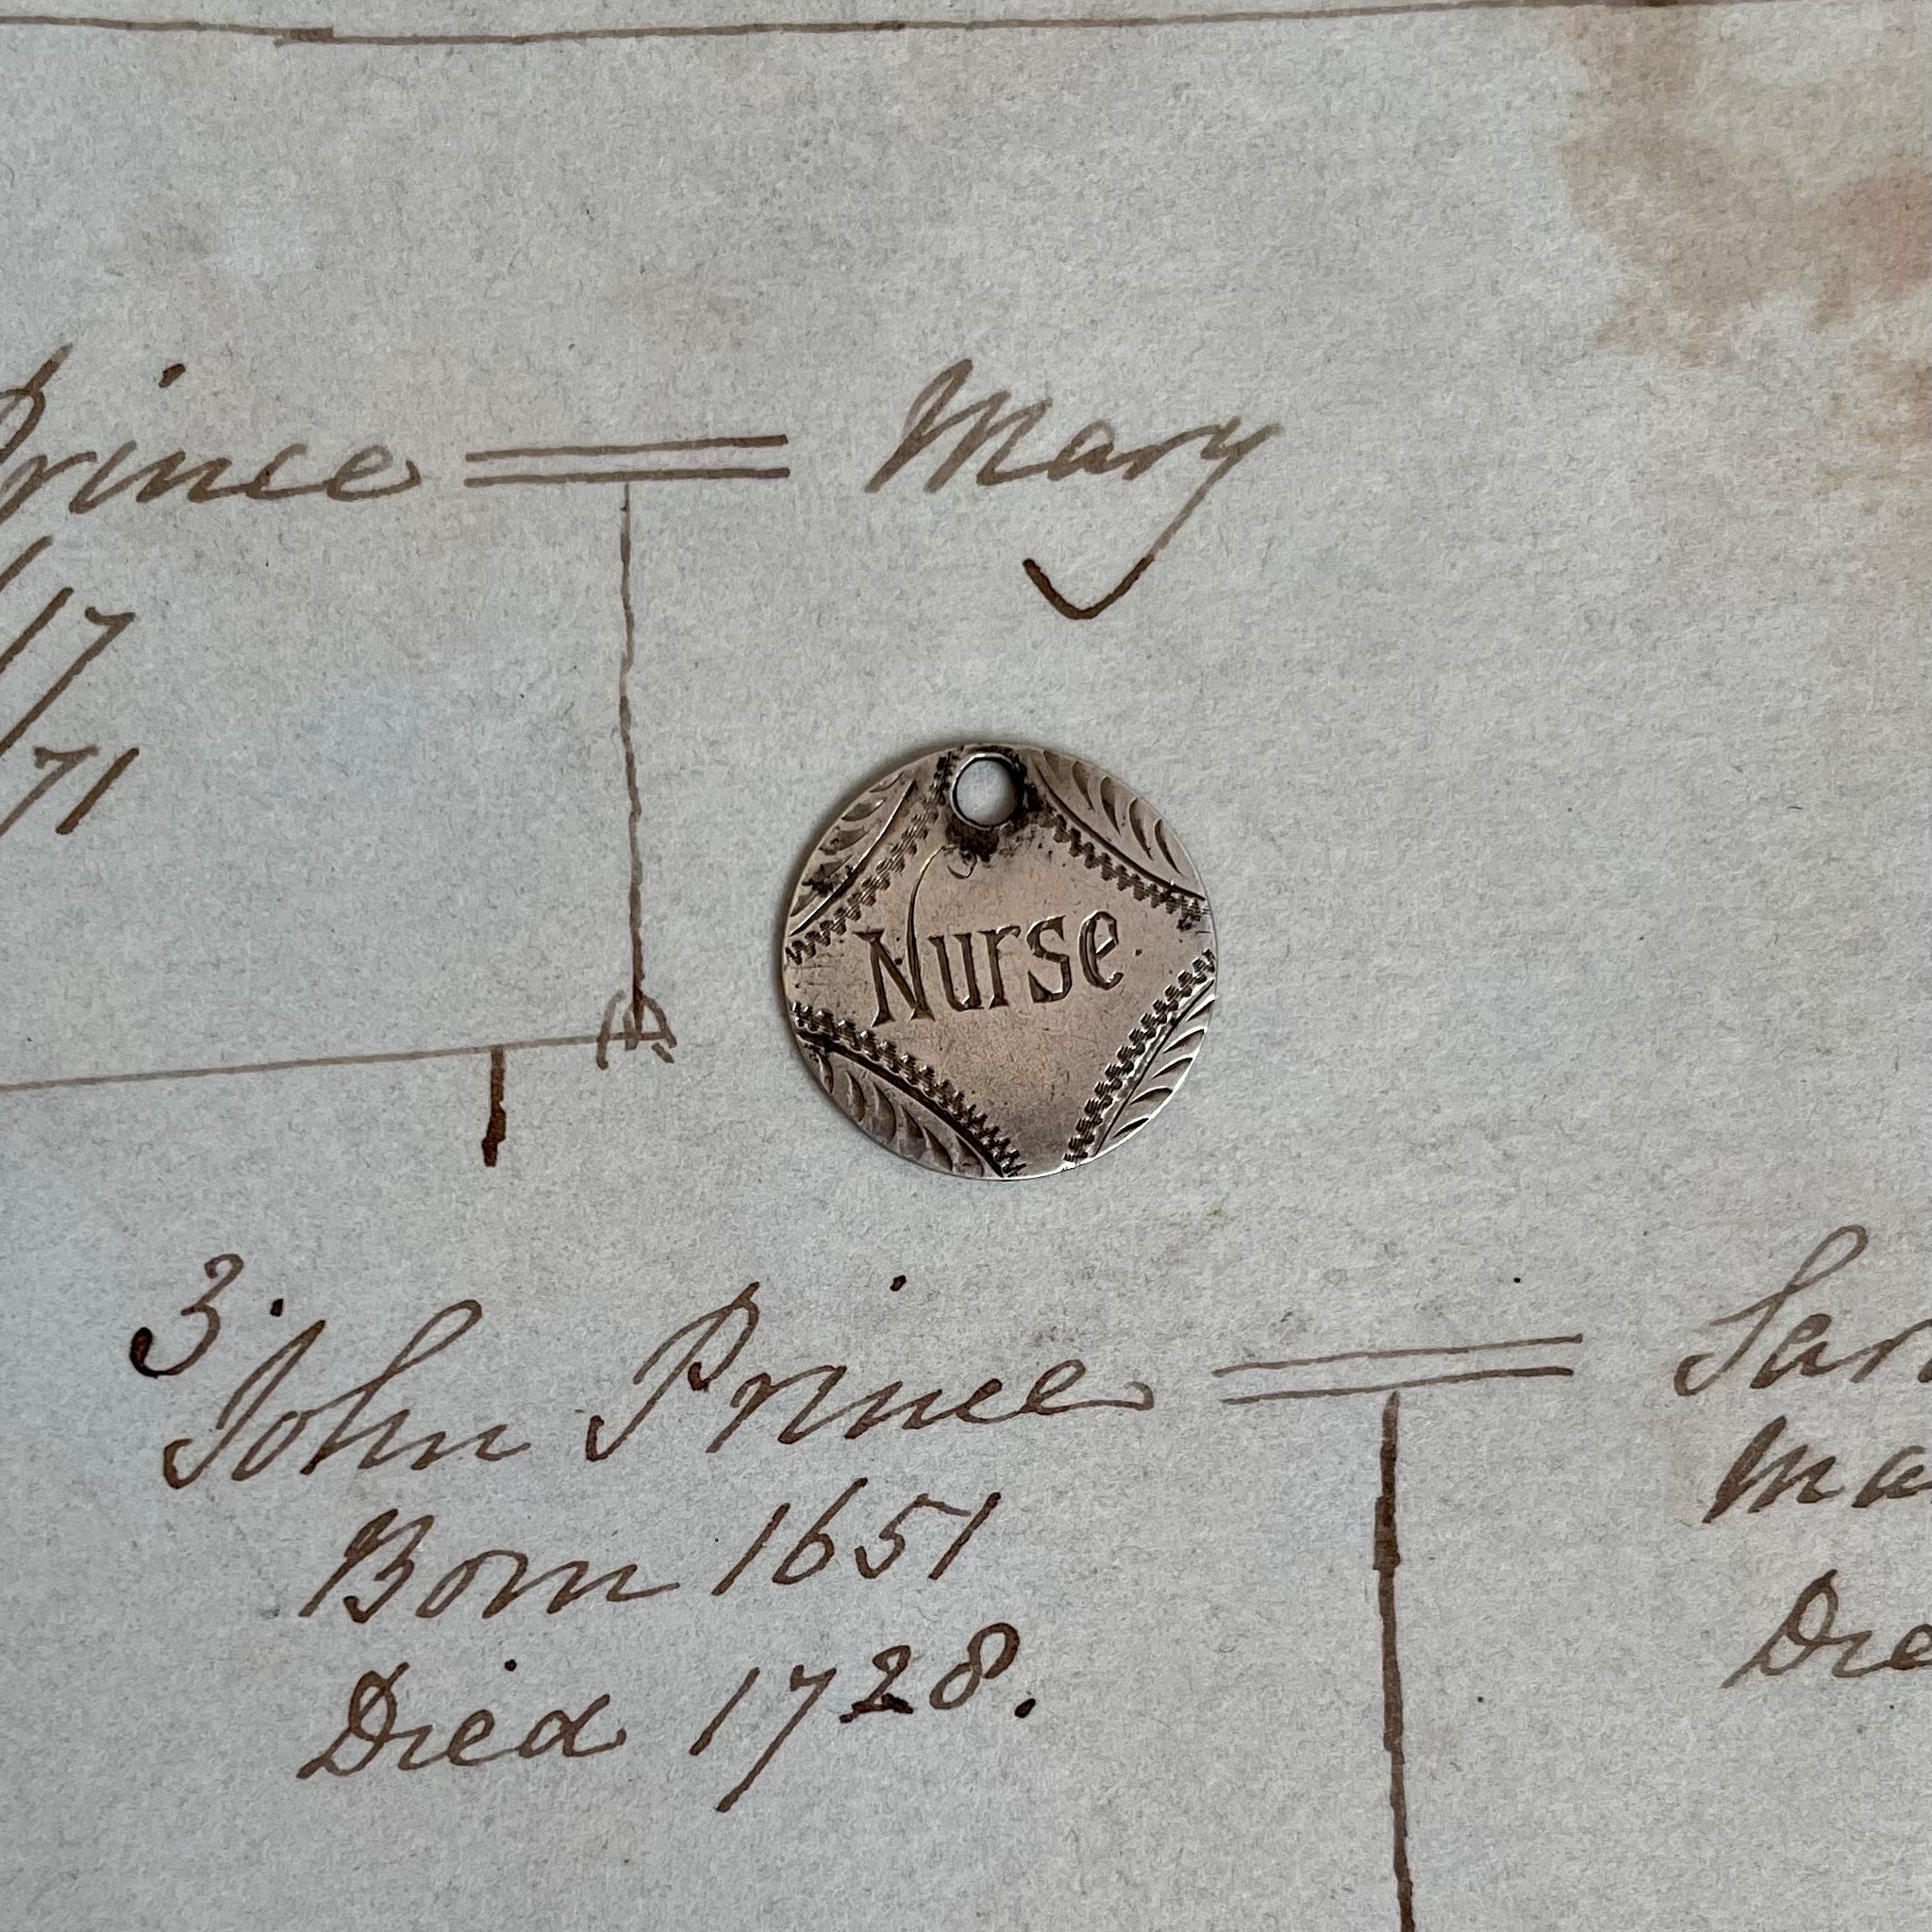 Prince = Mary
17
71
Nurse
3. John Prince =
Born 1651
Died 1728.